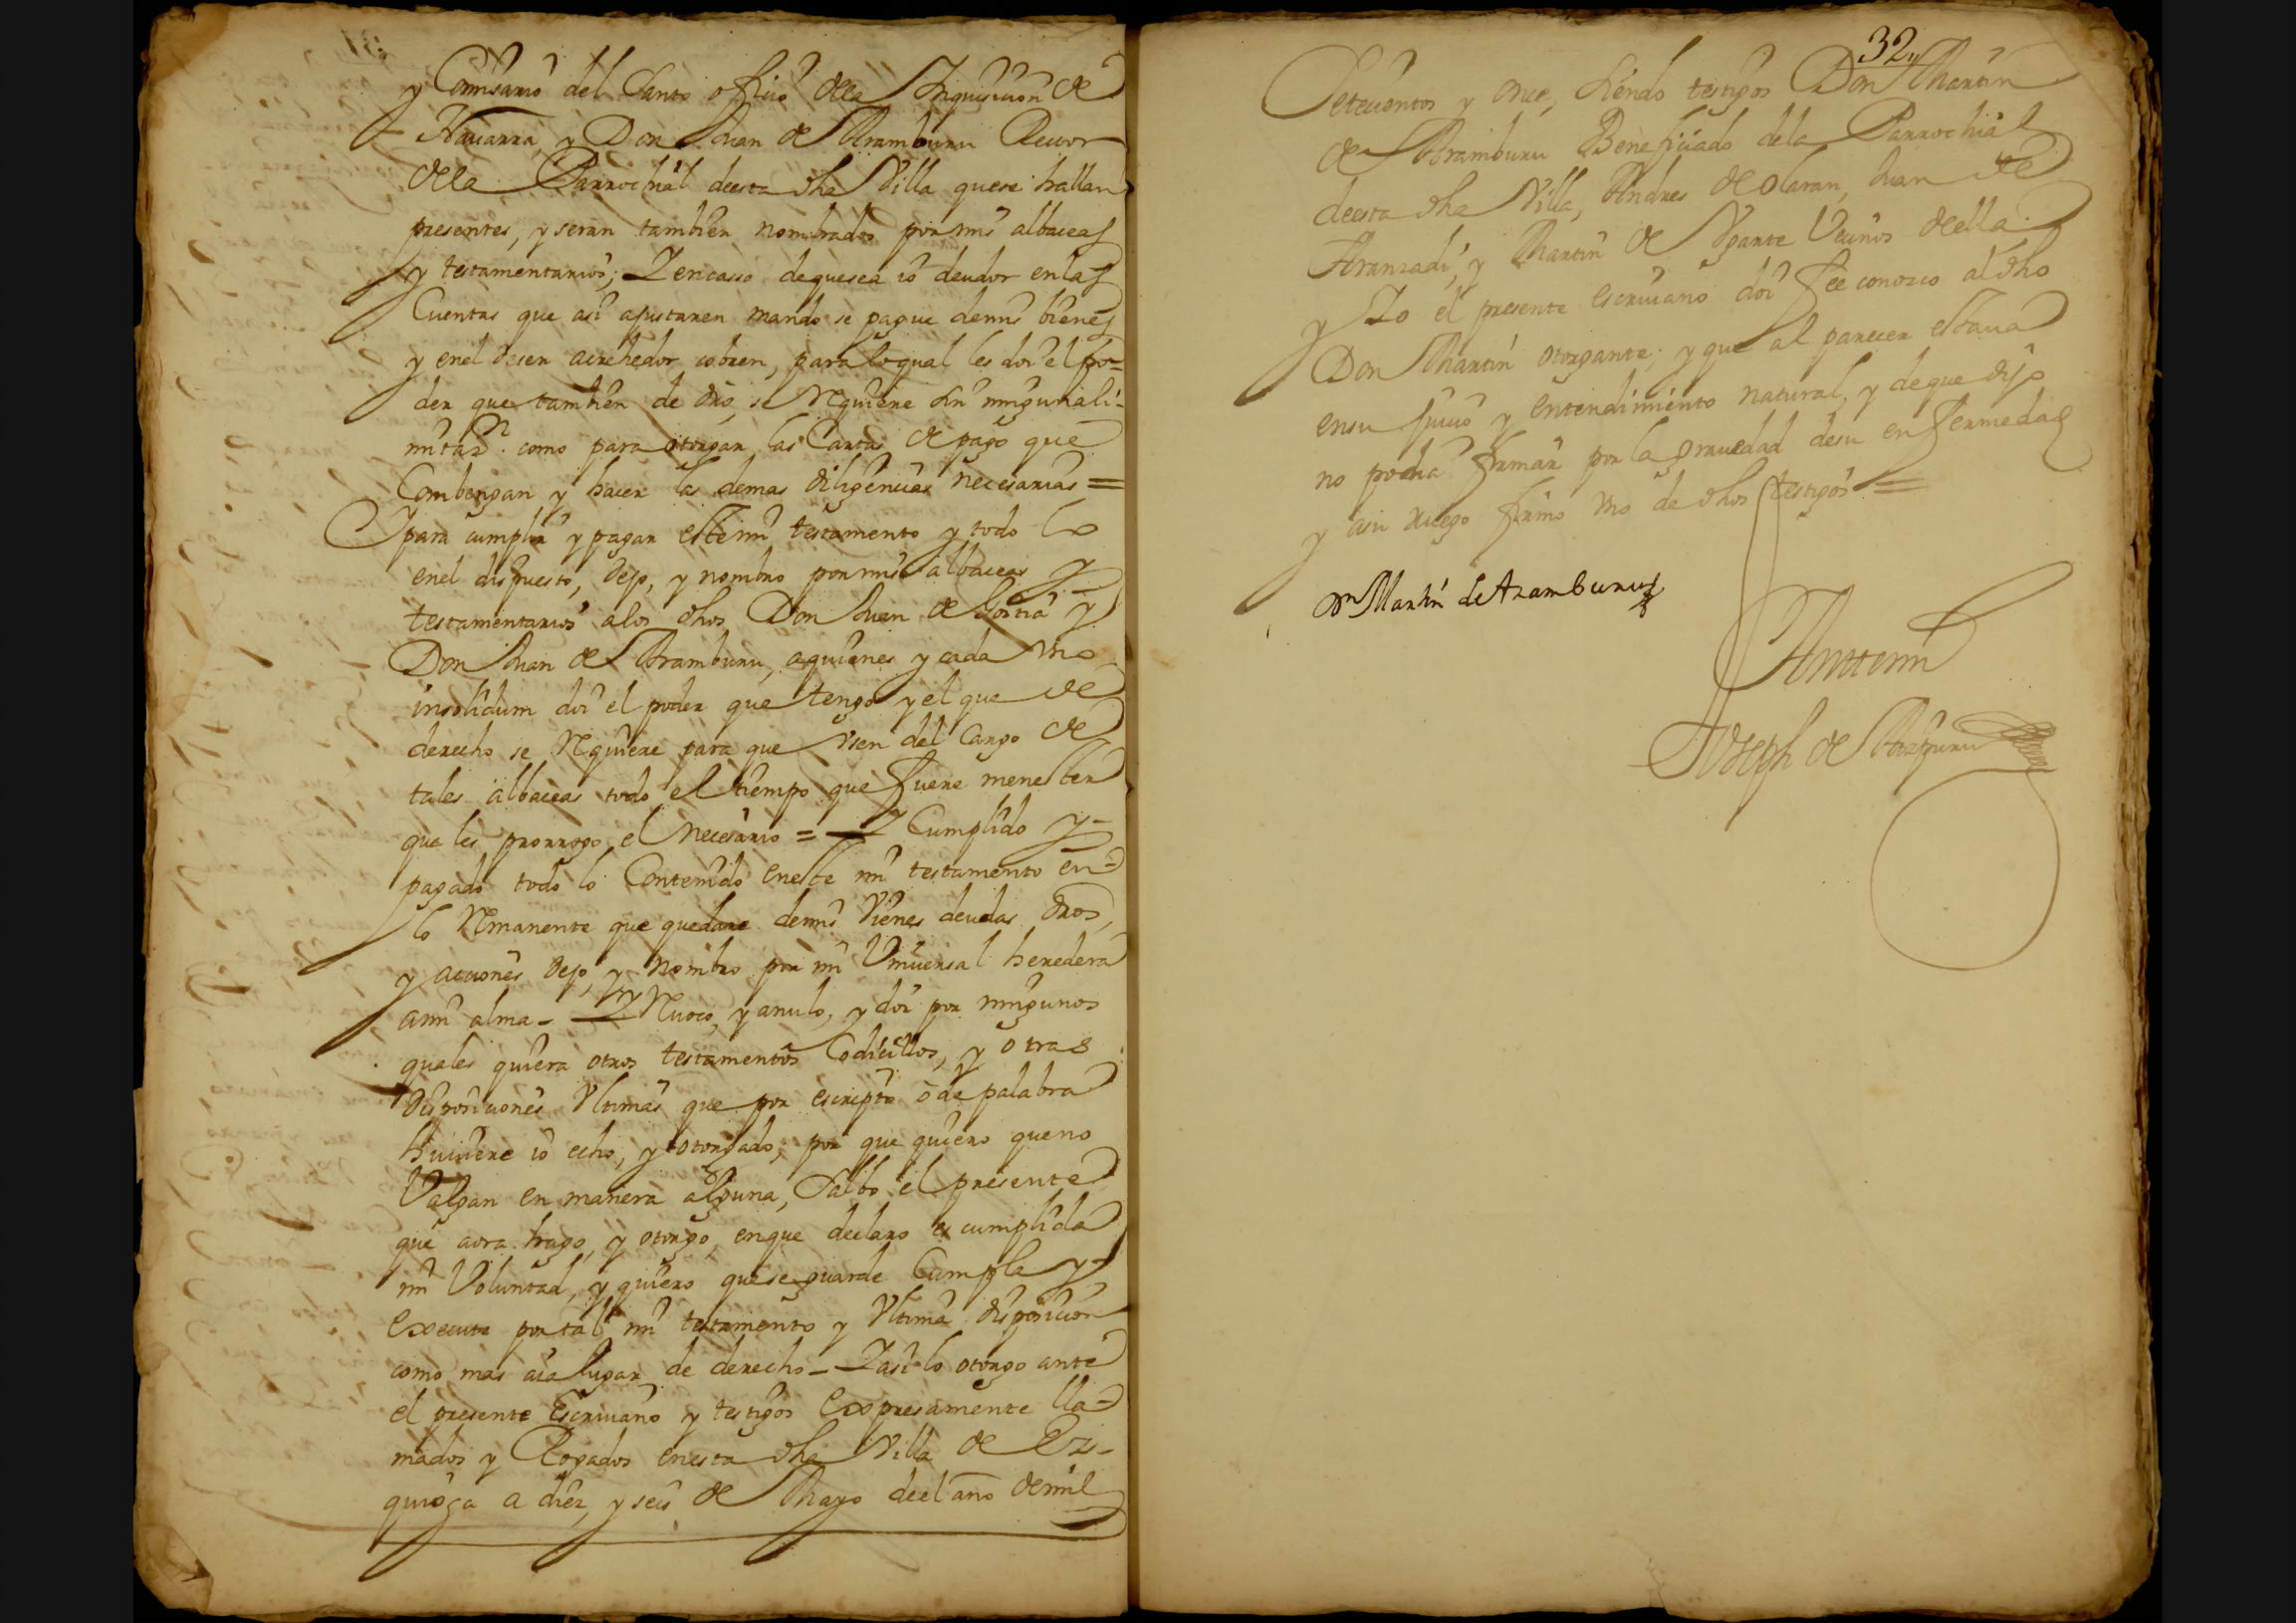 y Comisario del Santo oficio dela Inquisicion de
Nauarra, y Don Juan de Aramburu Rector
dela Parrochial deesta dha Villa quese hallan
presentes, y seran tambien nombrados por mis albaceas
y testamentarios; Y encasso dequesea io deudor enlas
Cuentas que asi ajustaren mando se pague demis bienes
y enel deser acrehedor cobren, para loqual les doi el po=
der que tambien de dro se requiere sin ninguna li-
mitaz.n como para otorgar las Cartas de pago que
Combengan y hacer las demas diligencias necesarias =
Ypara cumplir y pagar este mi testamento y todo lo
enel dispuesto, dejo, y nombro por mis albaceas y
testamentarios alos dhos Don Juan de y
Don Juan de Aramburu, aquienes y cada vno
insolidum doi el poder que tengo y el que de
derecho se requiere para que vsen del Cargo de
tales albaceas todo el tiempo que fuere menester
que les prorrogo el necesario = Y Cumplido y-
pagado todo lo Contenido eneste mi testamento en-
lo remanente que quedare demis vienes deudas dros,
y acciones dejo, y nombro por mi Vniuersal heredera
ami alma - Y reuoco, y anulo, y doi por ningunos
quales quiera otros testamentos Codicillos, y otras
disposiciones vltimas que por escripto o de palabra
huuiere io echo, y otorgado; por que quiero queno
Valgan en manera alguna, Salbo el presente
que aora hago, y otorgo, enque declaro es cumplida
mi Voluntad, y quiero quese guarde Cumpla y-
execute por tal mi testamento y vltima disposicion
como mas aia lugar de derecho - Y asi lo otorgo ante
el presente Escriuano y testigos Expresamente lla-
mados y Rogados enesta dha Villa de Ez-
quioga a diez, y seis de Mayo deel año demil
32
Setecientos y once, siendo testigos Don Martin
de Aramburu Beneficiado dela Parrochial
deesta dha Villa, Andres de Olaran, Juan de
Aranzadi, y Martin de Vgarte Vecinos deella
y Yo el presente escriuano doi fee conozco al dho
Don Martin otorgante; y que al parecer estaua
ensu juicio y entendimiento natural, y deque dijo
no podia firmar por la grauedad desu enfermedad
y asu ruego firmo vno de dhos testigos =
Dn Martin de Aramburu
Antemi
Joseph de